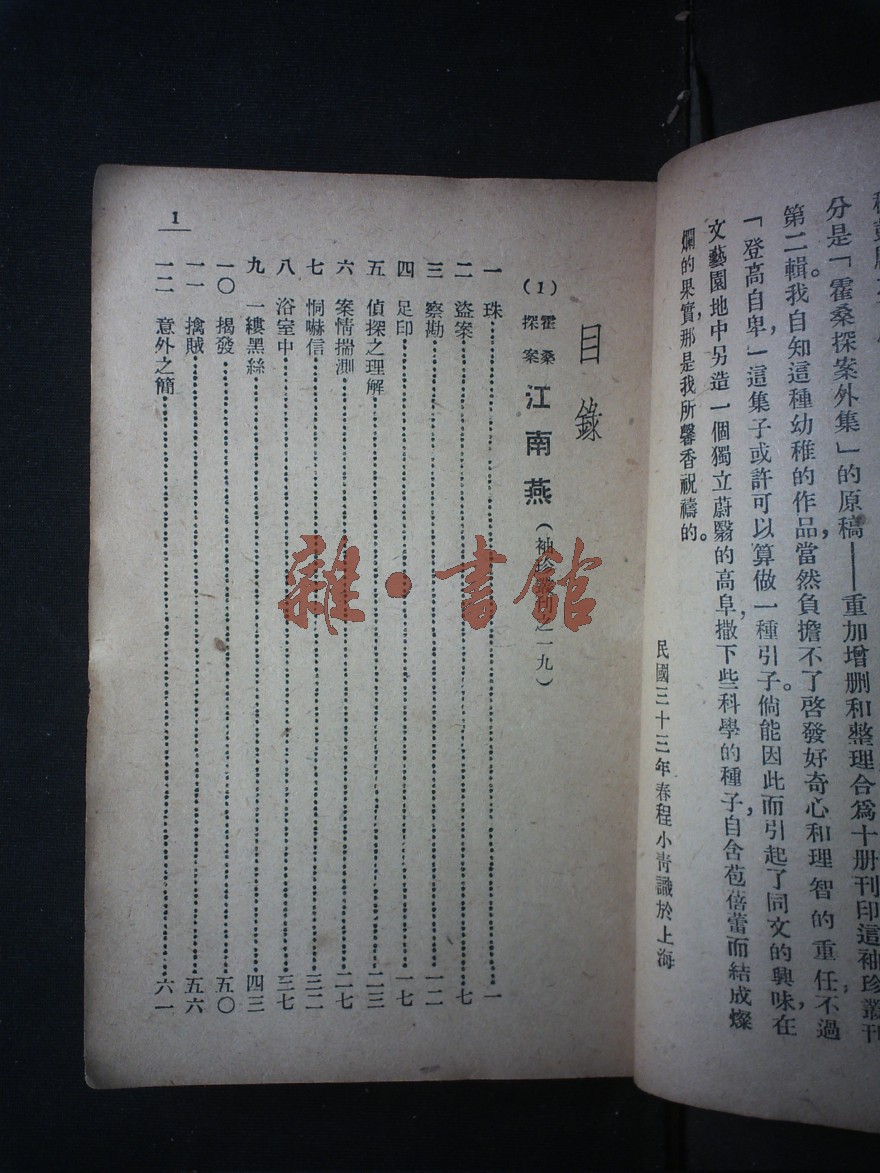 分是「霍桑探案外集」的原稿——重加增删和整理合爲十册刊印這袖珍叢刊
第二輯。我自知這種幼稚的作品，當然負擔不了啓發好奇心和理智的重任，不過
「登高自卑」，這集子或許可以算做一種引子。倘能因此而引起了同文的興味，在
文藝園地中另造一個獨立蔚翳的高阜，撒下些科學的種子，自含苞蓓蕾而結成燦
爛的果實，那是我所馨香祝禱的。
民國三十三年春程小青識於上海
目錄
(1) 霍桑探案 江南燕 (袖珍叢刊之一九)
一 珠……一
二 盜案……七
三 察勘……一二
四 足印……一七
五 偵探之理解……二三
六 案情揣測……二七
七 恫嚇信……三二
八 浴室中……三七
九 一縷黑絲……四三
一〇 揭發……五〇
一一 擒賊……五六
一二 意外之簡……六一
1
雜·書館